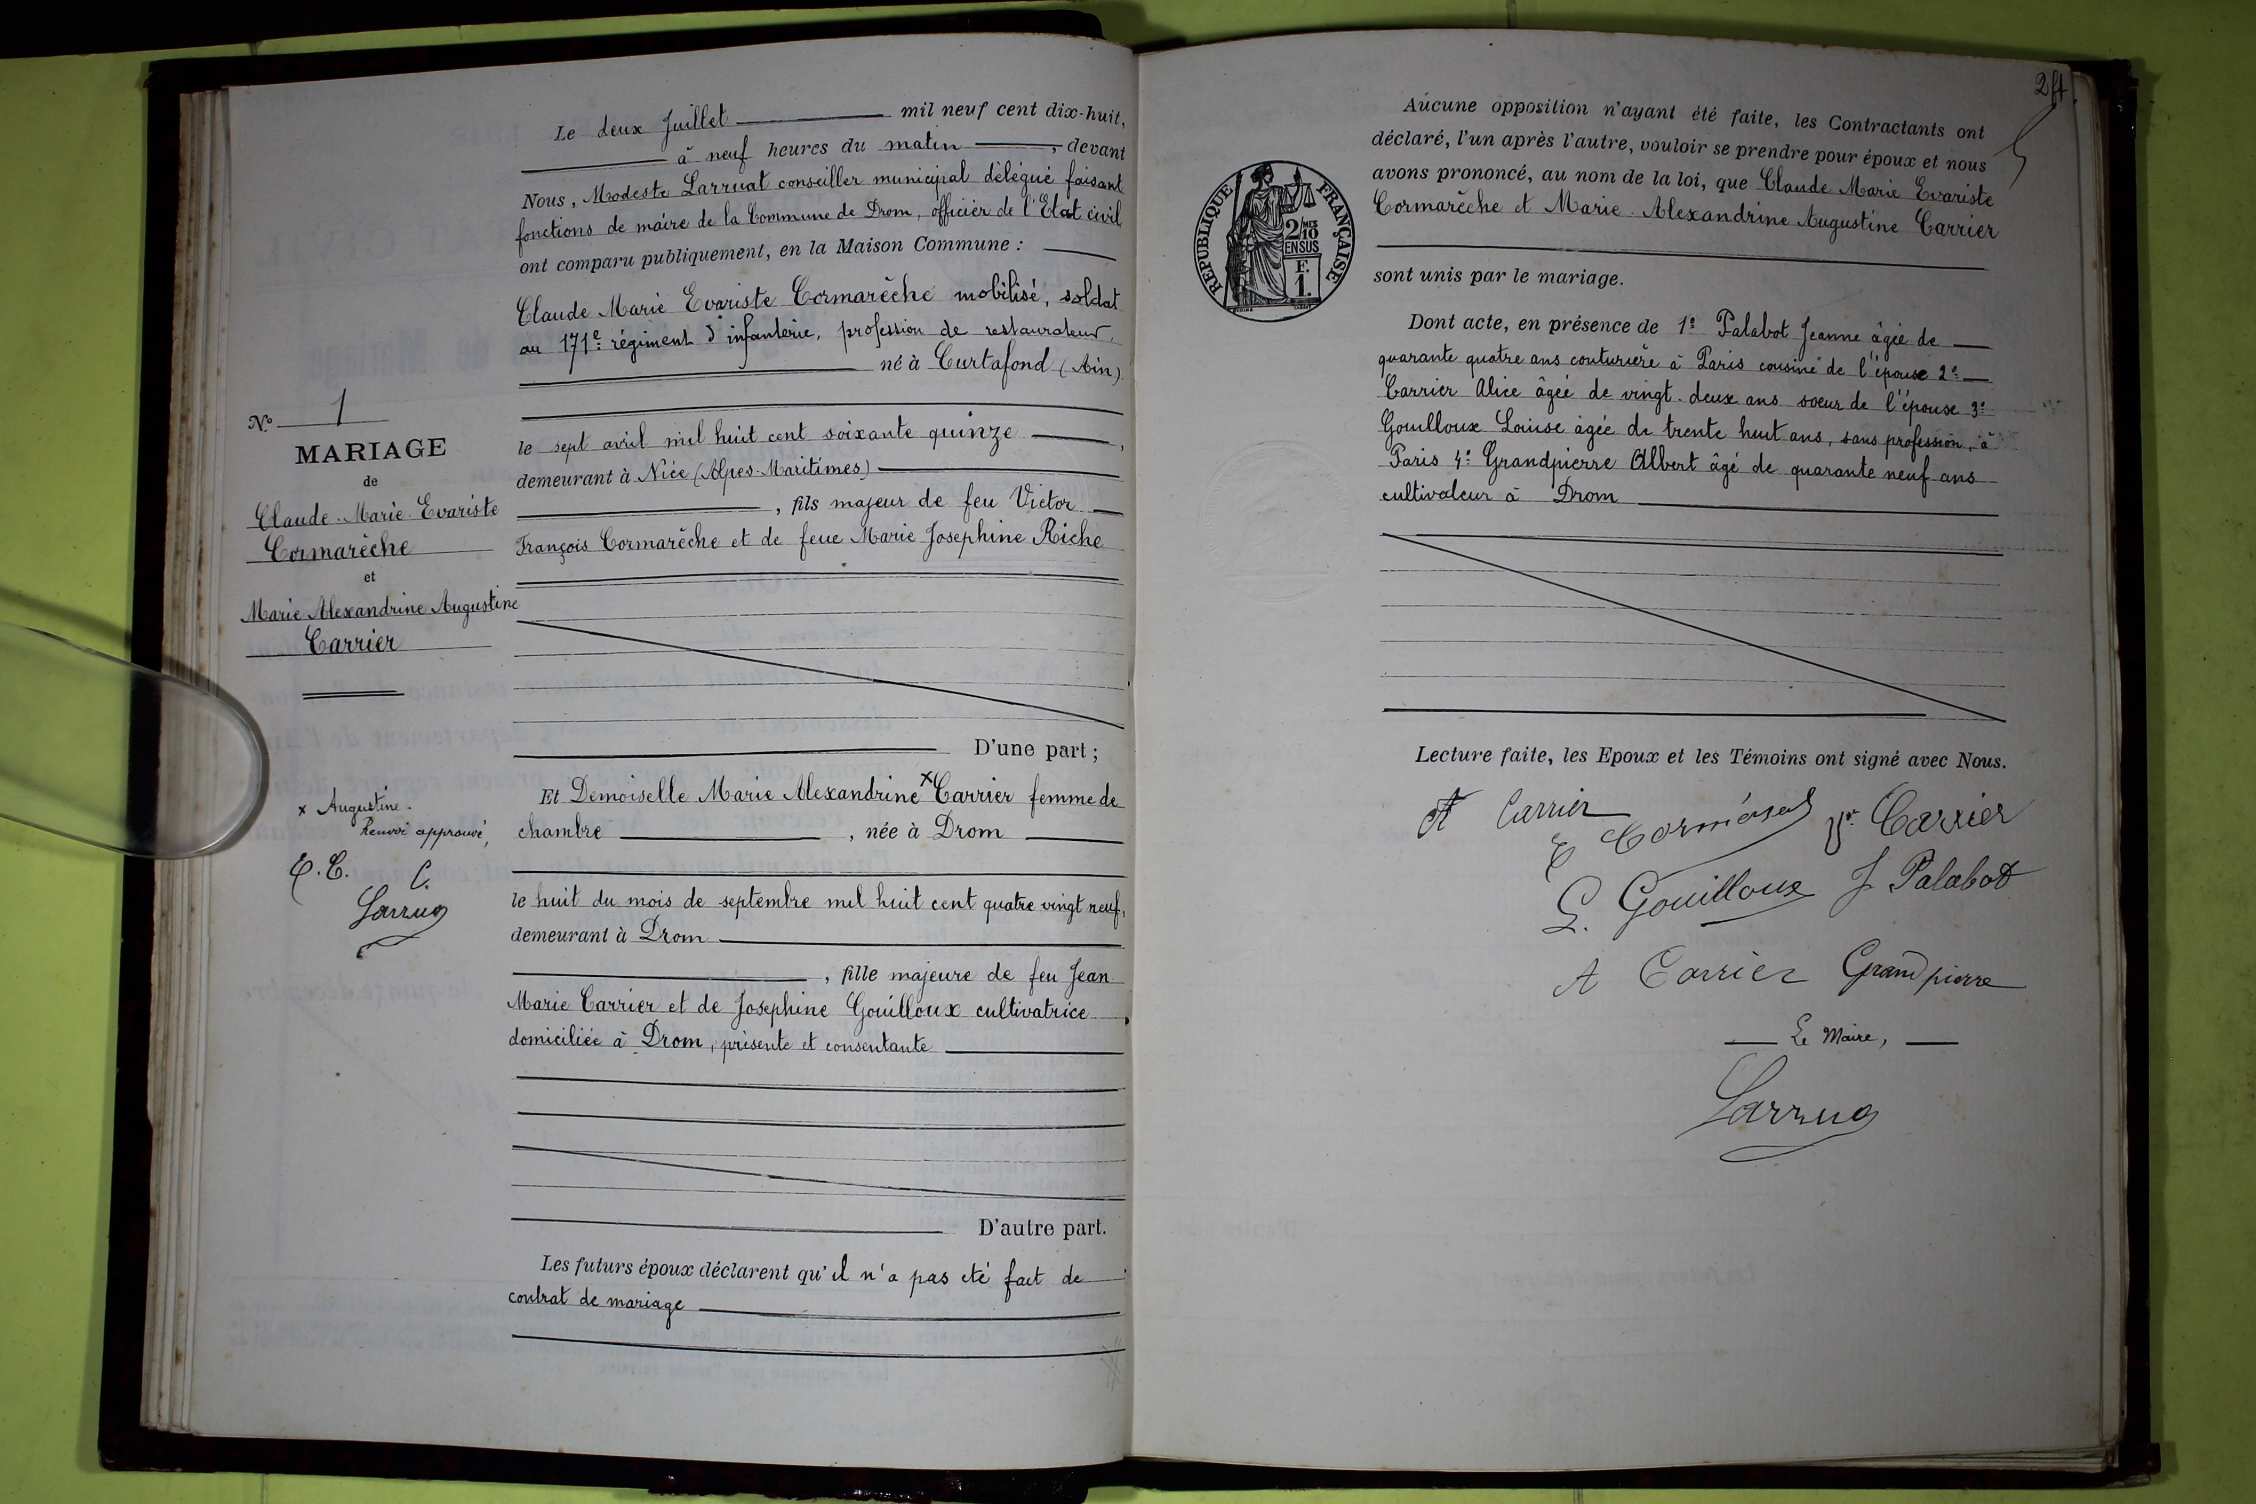 N° 1
MARIAGE
de
Claude Marie Evariste
Cormarèche
et
Marie Alexandrine Augustine
Carrier
x Augustine.
Renvoi approuvé,
E. C. C.
Larruat
Le deux Juillet mil neuf cent dix-huit,
à neuf heures du matin, devant
Nous, Modeste Larruat conseiller municipal délégué faisant
fonctions de maire de la Commune de Drom, officier de l'Etat civil
ont comparu publiquement, en la Maison Commune :
Claude Marie Evariste Cormarèche mobilisé, soldat
au 171e régiment d'infanterie, profession de restaurateur,
né à Curtafond (Ain)
le sept avril mil huit cent soixante quinze,
demeurant à Nice (Alpes-Maritimes)
, fils majeur de feu Victor
François Cormarèche et de feue Marie Josephine Riche
D'une part ;
Et Demoiselle Marie Alexandrine x Carrier femme de
chambre, née à Drom
le huit du mois de septembre mil huit cent quatre vingt neuf,
demeurant à Drom
, fille majeure de feu Jean
Marie Carrier et de Josephine Gouilloux cultivatrice
domiciliée à Drom, présente et consentante
D'autre part.
Les futurs époux déclarent qu'il n'a pas été fait de
contrat de mariage
24
REPUBLIQUE FRANÇAISE
2/10 MES
EN SUS
F.
1.
Aucune opposition n'ayant été faite, les Contractants ont
déclaré, l'un après l'autre, vouloir se prendre pour époux et nous
avons prononcé, au nom de la loi, que Claude Marie Evariste
Cormarèche et Marie Alexandrine Augustine Carrier
sont unis par le mariage.
Dont acte, en présence de 1° Palabot Jeanne âgée de
quarante quatre ans couturière à Paris cousine de l'épouse 2°
Carrier Alice âgée de vingt-deux ans soeur de l'épouse 3°
Gouilloux Louise âgée de trente huit ans, sans profession, à
Paris 4° Grandpierre Albert âgé de quarante neuf ans
cultivateur à Drom
Lecture faite, les Epoux et les Témoins ont signé avec Nous.
A Carrier
E Vve Carrier
L. Gouilloux J Palabot
A Carrier Grandpierre
Le Maire,
Larruat